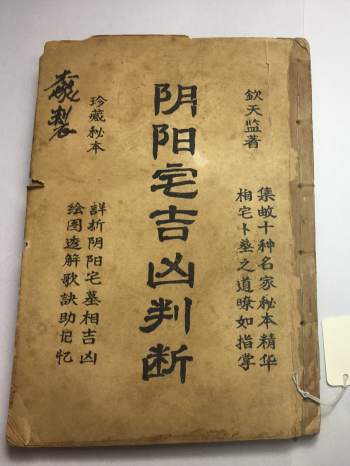 欽天监著
集十种名家秘本精华
相宅卜墓之道瞭如指掌
阴阳宅吉凶判断
珍藏秘本
詳析阴阳宅墓相吉凶
绘图透解歌訣助记忆
製